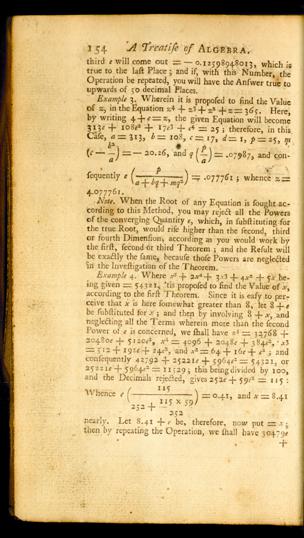 154 A Treatise of ALGEBRA.
third e will come out = — 0.12598948013, which is
true to the last Place; and if, with this Number, the
Operation be repeated, you will have the Answer true to
upwards of 50 decimal Places.
Example 3. Wherein it is proposed to find the Value
of z, in the Equation z⁴ + z³ + z² + z = 365. Here,
by writing 4 + e = z, the given Equation will become
313e + 108e² + 17e³ + e⁴ = 25; therefore, in this
Case, a = 313, b = 108, c = 17, d = 1, p = 25,
(c — b²/a) = — 20.26, and q (p/a) = .07987, and con-
sequently e (p / a + bq + mq²) = .077761; whence z =
4.077761.
Note. When the Root of any Equation is sought ac-
cording to this Method, you may reject all the Powers
of the converging Quantity e, which, in substituting for
the true Root, would rise higher than the second, third
or fourth Dimension, according as you would work by
the first, second or third Theorem; and the Result will
be exactly the same, because those Powers are neglected
in the Investigation of the Theorem.
Example 4. Where x⁵ + 2x⁴ + 3x³ + 4x² + 5x be-
ing given = 54321, 'tis proposed to find the Value of x,
according to the first Theorem. Since it is easy to per-
ceive that x is here somewhat greater than 8, let 8 + e
be substituted for x; and then by involving 8 + x, and
neglecting all the Terms wherein more than the second
Power of e is concerned, we shall have x⁵ = 32768 +
20480e + 5120e², x⁴ = 4096 + 2048e + 384e², x³
= 512 + 192e + 24e², and x² = 64 + 16e + e²; and
consequently 42792 + 25221e + 5964e² = 54321, or
25221e + 5964e² = 11529; this being divided by 100,
and the Decimals rejected, gives 252e + 59e² = 115:
Whence e (115 / 252 + 115 × 59 / 252) = 0.41, and x = 8.41
nearly. Let 8.41 + e be, therefore, now put = x;
then by repeating the Operation, we shall have 30479e
+